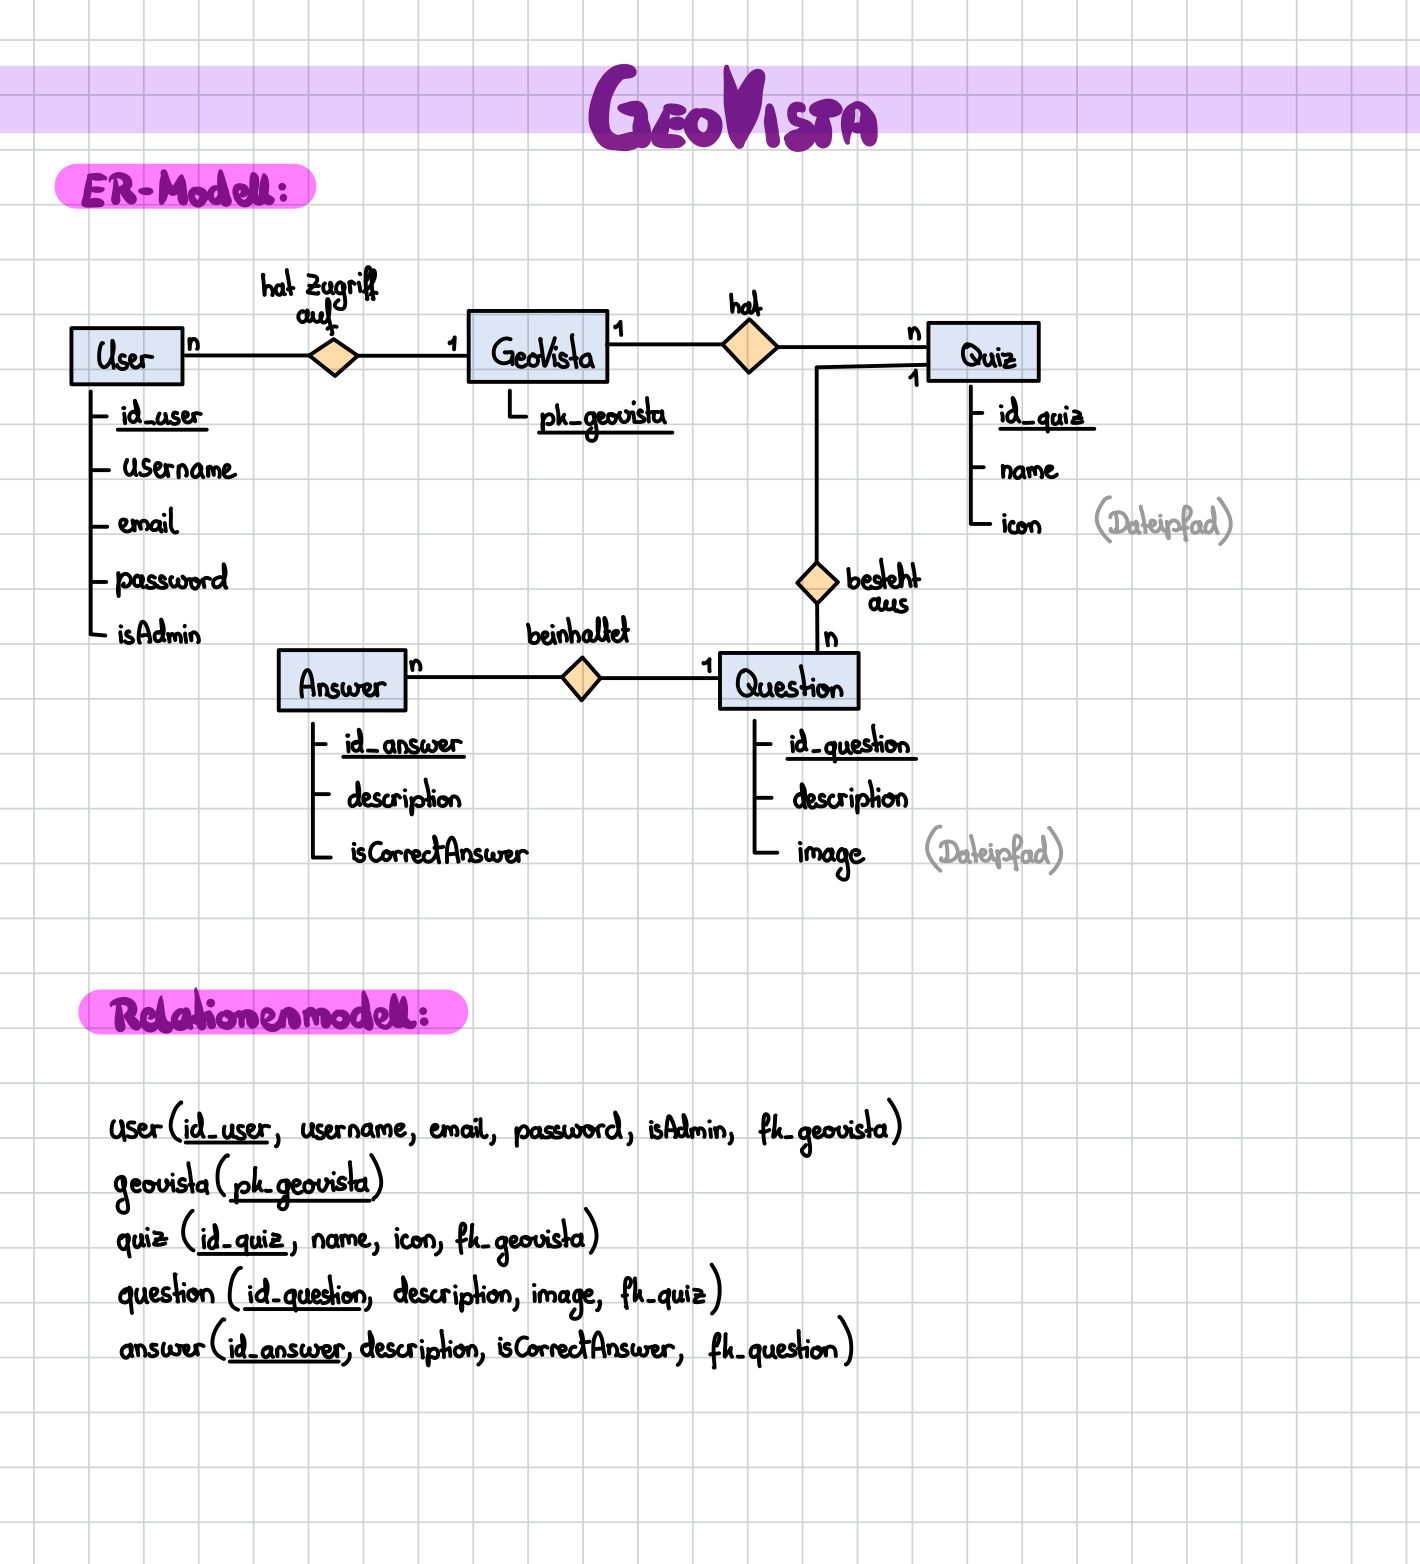 GeoVista
ER-Modell:
hat Zugriff
auf
hat
User
n
1
GeoVista
1
n
Quiz
1
id_user
username
email
password
isAdmin
pk_geovista
id_quiz
name
icon (Dateipfad)
besteht
aus
beinhaltet
n
Answer
n
1
Question
id_answer
description
isCorrectAnswer
id_question
description
image (Dateipfad)
Relationenmodell:
user (id_user, username, email, password, isAdmin, fk_geovista)
geovista (pk_geovista)
quiz (id_quiz, name, icon, fk_geovista)
question (id_question, description, image, fk_quiz)
answer (id_answer, description, isCorrectAnswer, fk_question)